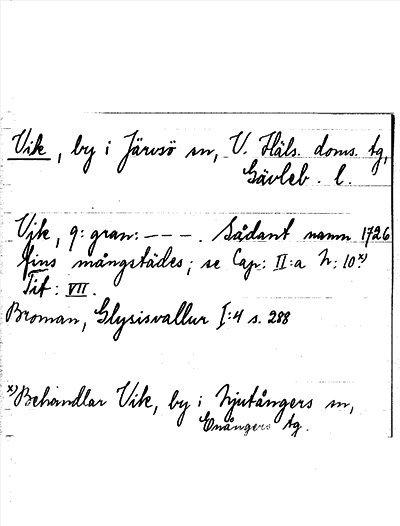 Vik, by i Järvsö sn, V. Häls. doms. tg,
Gävleb. l.
Vik, q: gran: - - - . Sådant namn 1726
fins mångstädes; se Cap: II:a N: 10 x)
Tit: VII.
Broman, Glysisvallur I:4 s. 288
x) Behandlar Vik, by i Njutångers sn,
Enångers tg.